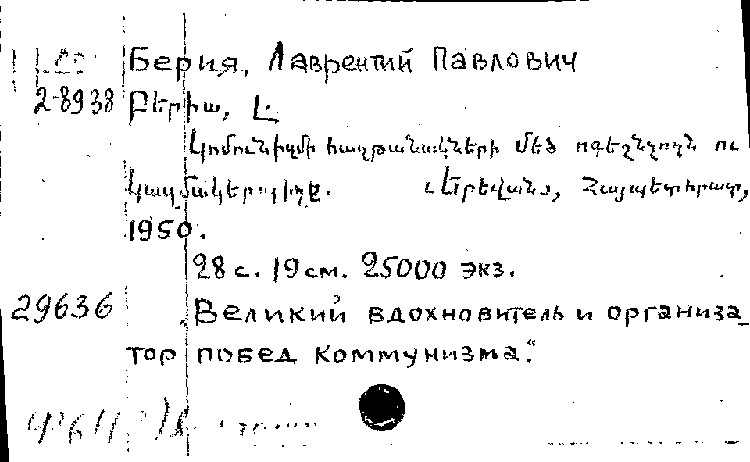 Берия, Лаврентий Павлович
2-8938 Բերիա, Լ.
Կոմունիզմի հաղթանակների մեծ ոգեշնչողն ու
կազմակերպիչը. Երեվան, Հայպետհրատ,
1950.
28 с. 19 см. 25000 экз.
29636 „Великий вдохновитель и организа-
тор побед коммунизма.“